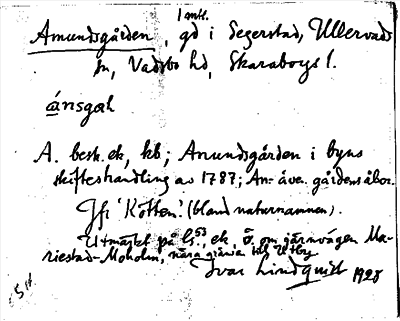 1 mtl.
Amundsgården, gd i Segerstad, Ullervads
sn, Vadsbo hd, Skaraborgs l.
ánsgaḷ
A. besk. ek, kb; Amundsgården i byns
skifteshandling av 1787; An- även gårdens åbor.
Jfr 'Kotten' (bland naturnamnen).
Utmärkt på Gs 53, ek, ö. om järnvägen Ma-
riestad-Moholm, nära gränsen till Utby
Ivar Lindquist 1928